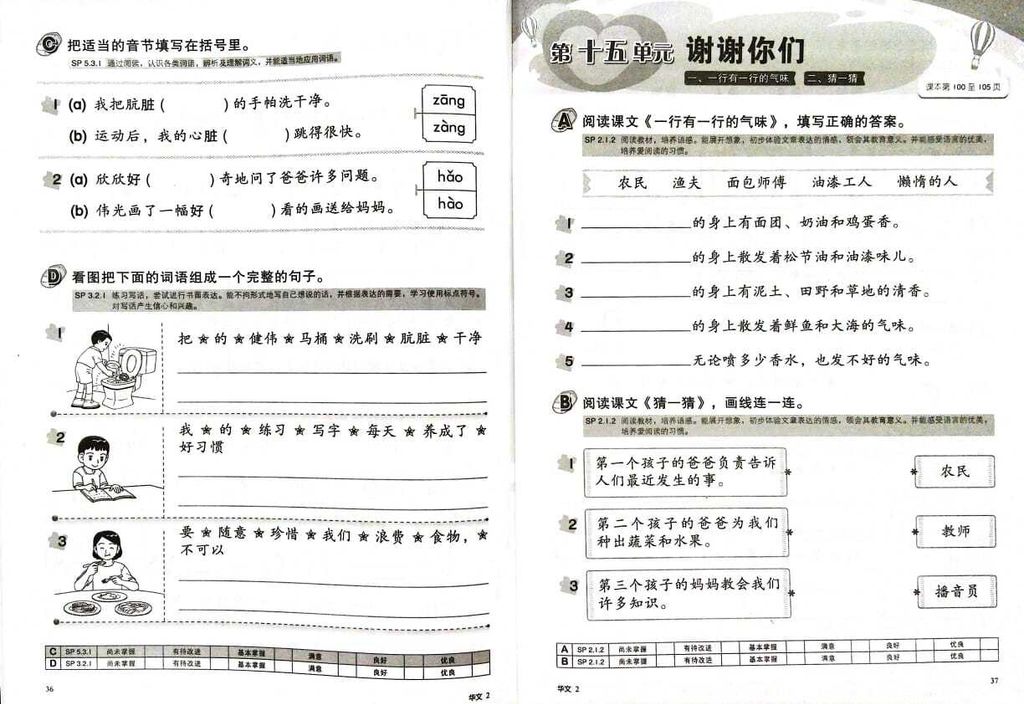 C 把适当的音节填写在括号里。
SP 5.3.1 通过阅读，认识各类词语，辨析及理解词义，并能适当地应用词语。
1 (a) 我把肮脏 ( ) 的手帕洗干净。
(b) 运动后，我的心脏 ( ) 跳得很快。
zāng
zàng
2 (a) 欣欣好 ( ) 奇地问了爸爸许多问题。
(b) 伟光画了一幅好 ( ) 看的画送给妈妈。
hǎo
hào
D 看图把下面的词语组成一个完整的句子。
SP 3.2.1 练习写话，尝试进行书面表达。能不拘形式地写自己想说的话，并根据表达的需要，学习使用标点符号。
对写话产生信心和兴趣。
1 把 ★ 的 ★ 健伟 ★ 马桶 ★ 洗刷 ★ 肮脏 ★ 干净
2 我 ★ 的 ★ 练习 ★ 写字 ★ 每天 ★ 养成了 ★
好习惯
3 要 ★ 随意 ★ 珍惜 ★ 我们 ★ 浪费 ★ 食物， ★
不可以
C SP 5.3.1 尚未掌握 有待改进 基本掌握 满意 良好 优良
D SP 3.2.1 尚未掌握 有待改进 基本掌握 满意 良好 优良
36
华文 2
第十五单元 谢谢你们
一、一行有一行的气味 二、猜一猜
课本第 100 至 105 页
A 阅读课文《一行有一行的气味》，填写正确的答案。
SP 2.1.2 阅读教材，培养语感。能展开想象，初步体验文章表达的情感，领会其教育意义。并能感受语言的优美，
培养爱阅读的习惯。
农民 渔夫 面包师傅 油漆工人 懒惰的人
1 ________的身上有面团、奶油和鸡蛋香。
2 ________的身上散发着松节油和油漆味儿。
3 ________的身上有泥土、田野和草地的清香。
4 ________的身上散发着鲜鱼和大海的气味。
5 ________无论喷多少香水，也发不好的气味。
B 阅读课文《猜一猜》，画线连一连。
SP 2.1.2 阅读教材，培养语感。能展开想象，初步体验文章表达的情感，领会其教育意义。并能感受语言的优美，
培养爱阅读的习惯。
1 第一个孩子的爸爸负责告诉
人们最近发生的事。
农民
2 第二个孩子的爸爸为我们
种出蔬菜和水果。
教师
3 第三个孩子的妈妈教会我们
许多知识。
播音员
A SP 2.1.2 尚未掌握 有待改进 基本掌握 满意 良好 优良
B SP 2.1.2 尚未掌握 有待改进 基本掌握 满意 良好 优良
华文 2
37